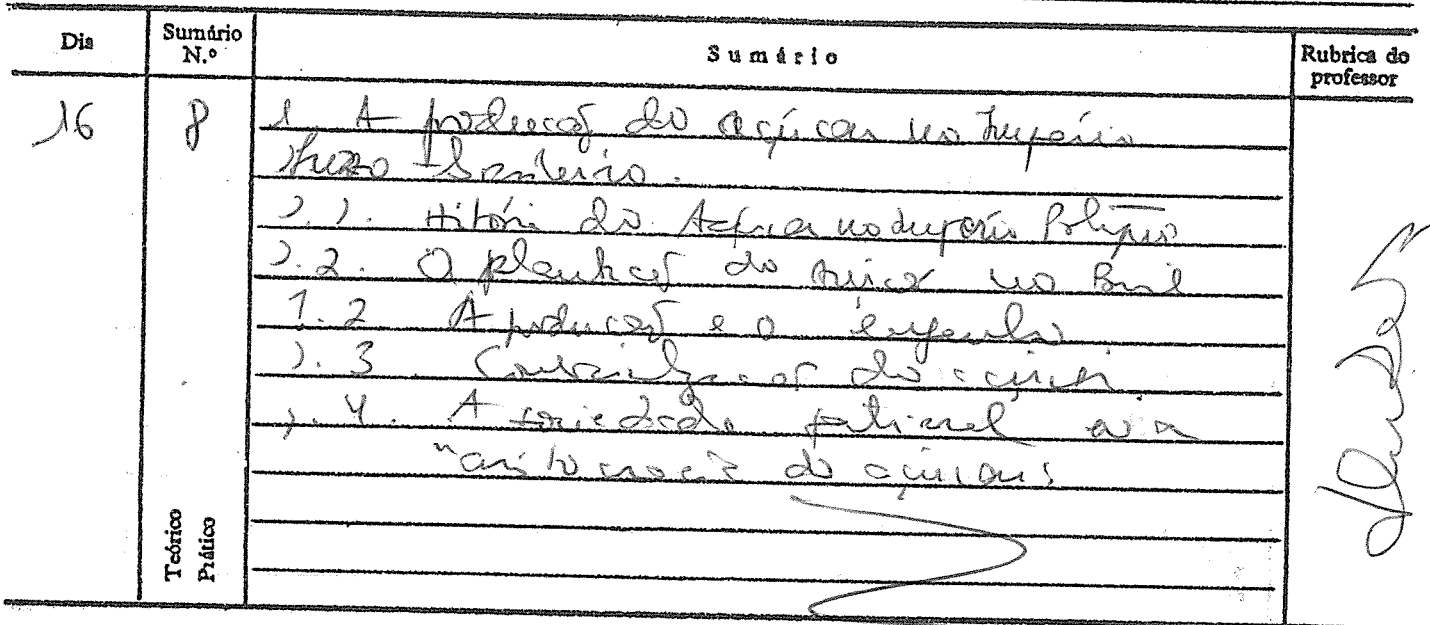 Dia
Sumário N.º
Sumário
Rubrica do professor
16
8
1. A produção do açúcar no Império
Luso-brasileiro.
1.1. História do Açúcar no Império
1.2. A plantação do açúcar no Brasil
1.2 A produção e o engenho
1.3. Comercialização do açúcar
1.4. A sociedade e a
"aristocracia do açúcar"
Teórico
Prático